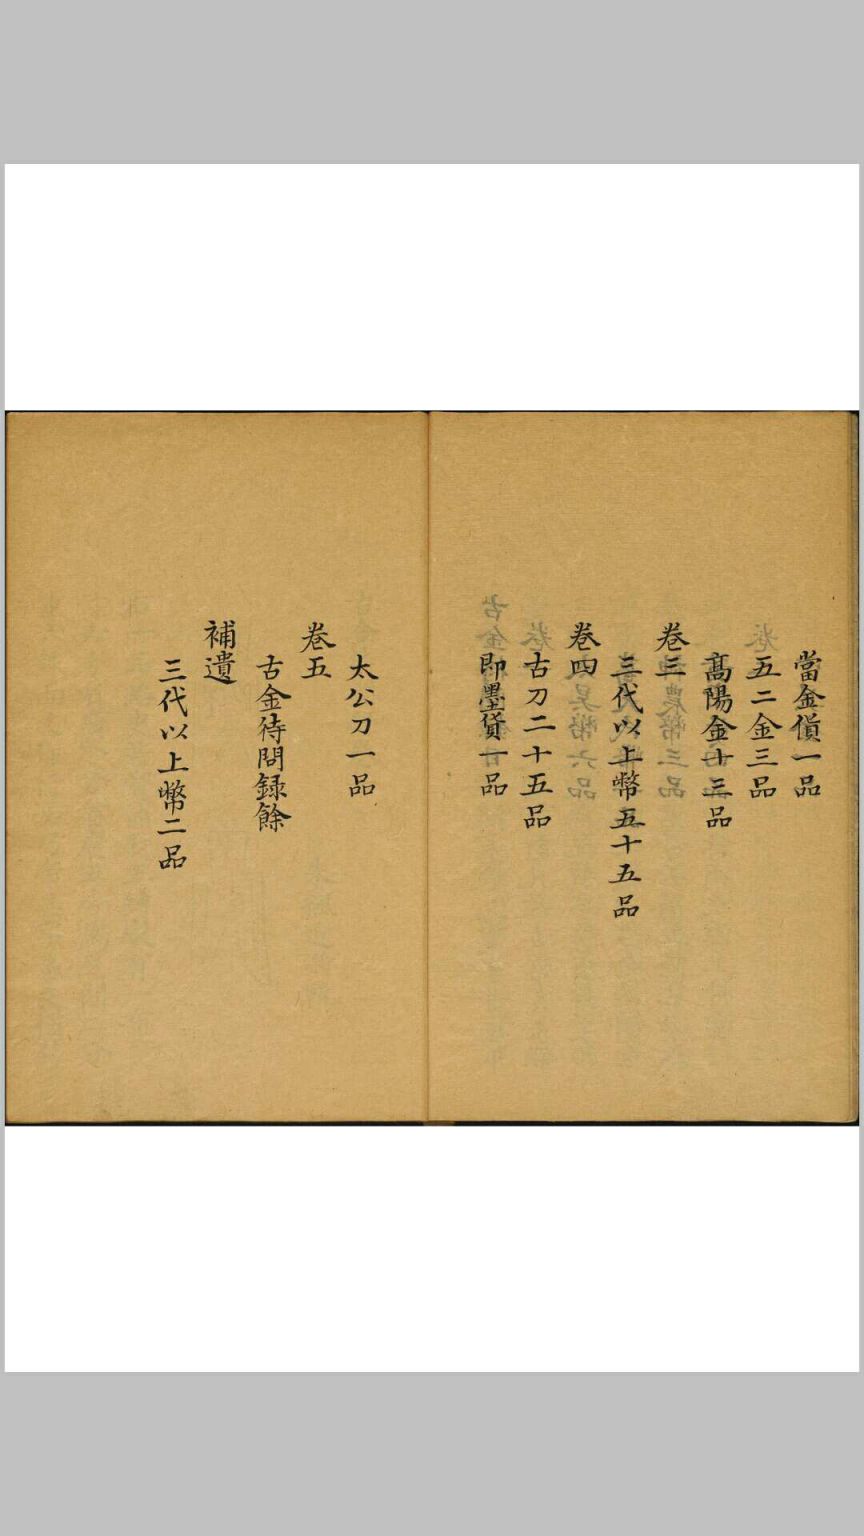 當金貨一品
五二金三品
髙陽金十三品
卷三
三代以上幣五十五品
卷四
古刀二十五品
即墨貨一品
太公刀一品
卷五
古金待問録餘
補遺
三代以上幣二品